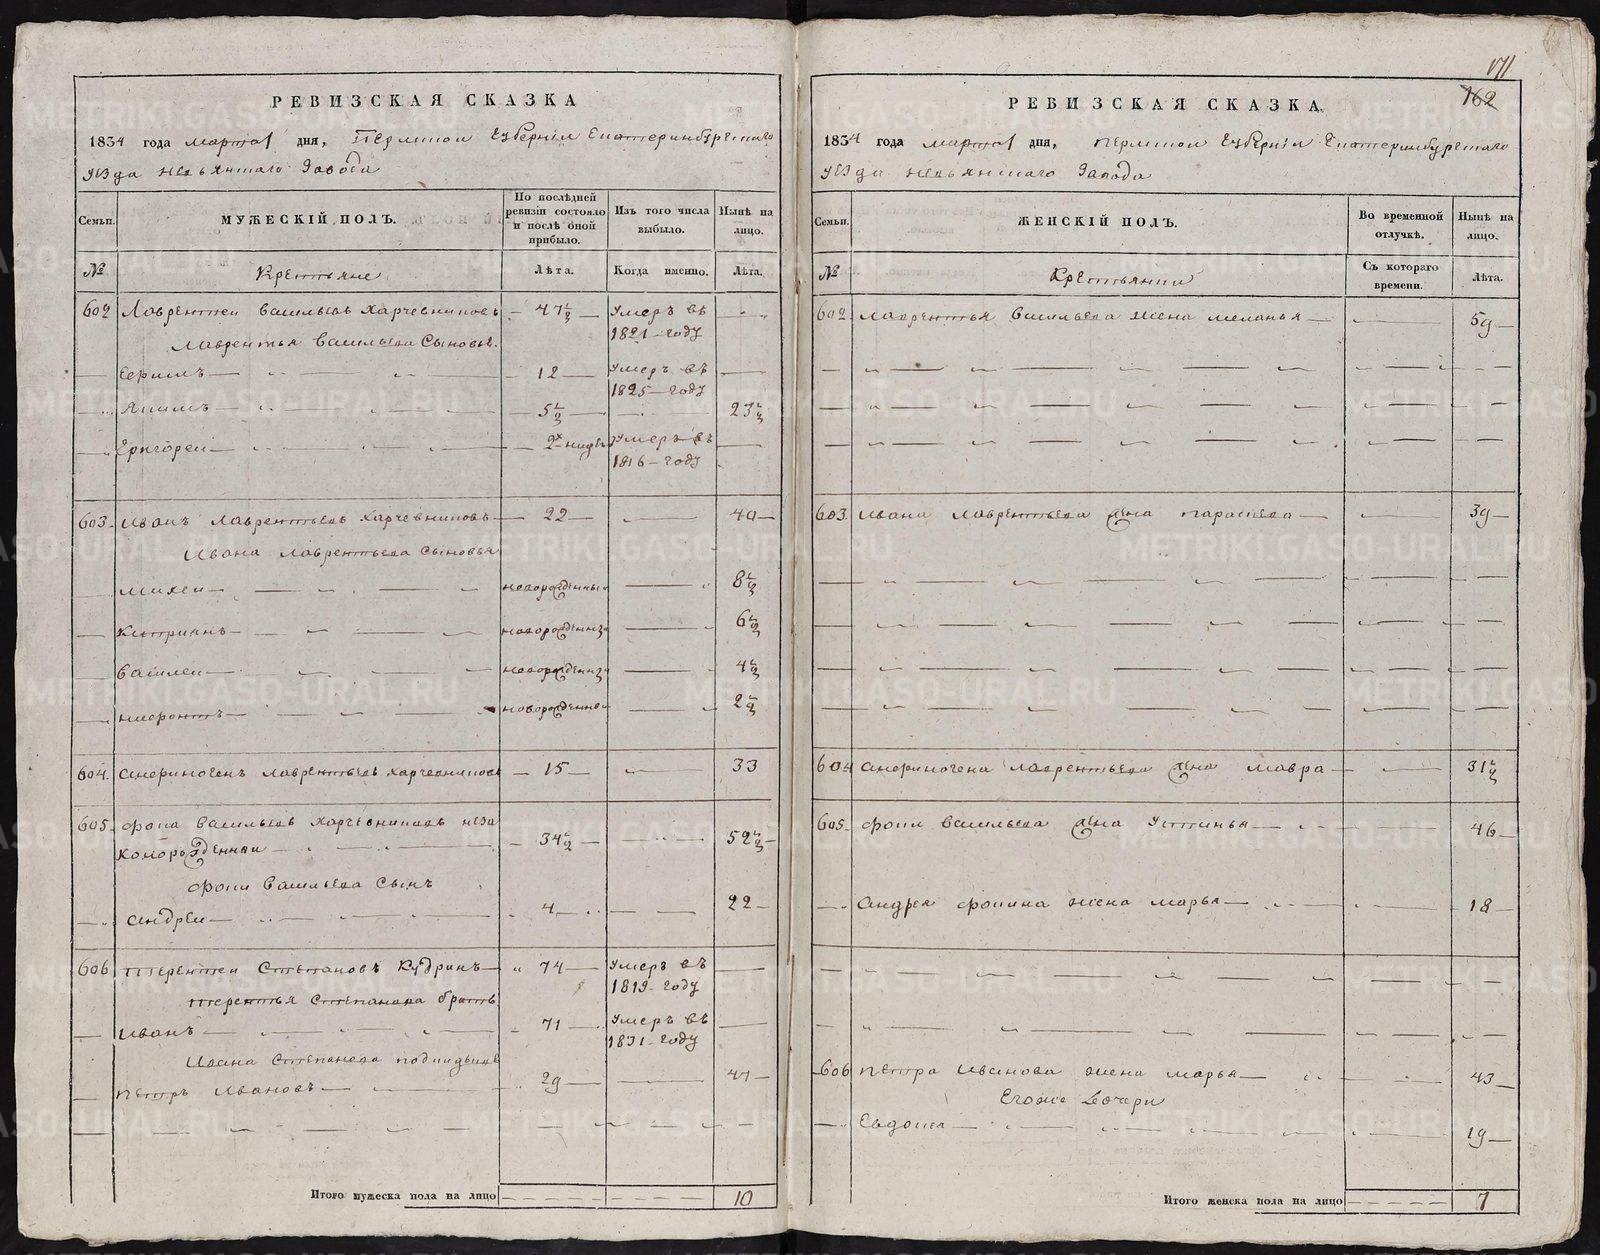 171
162
РЕВИЗСКАЯ СКАЗКА
1834 года марта 1 дня, Пермской Губернiи Екатеринбургскаго
уѣзда Невьянскаго Завода
Семьи.
МУЖЕСКIЙ ПОЛЪ.
По послѣдней ревизiи состояло и послѣ оной прибыло.
Изъ того числа выбыло.
Нынѣ на лицо.
№
Крестьяне
Лѣта.
Когда именно.
Лѣта.
602 Лаврентей Васильевъ Харчевниковъ 47½ Умеръ въ 1821 году
Лаврентья Васильева Сыновья.
Ефимъ 12 Умеръ въ 1825 году
Якимъ 5½ 23½
Григорей 2х недель Умеръ въ 1816 году
603 Иванъ Лаврентьевъ Харчевниковъ 22 40
Ивана Лаврентьева Сыновья
Михей новорожденный 8½
Киприянъ новорожденный 6½
Василей новорожденный 4½
новорожденный 2½
604 Анфиногенъ Лаврентьевъ Харчевниковъ 15 33
605 Фока Васильевъ Харчевниковъ неза
конорожденнай 34½ 52½
Фоки Васильева Сынъ
Андреи 4 22
606 Терентеи Степановъ Кудринъ 74 Умеръ въ 1819 году
Терентья Степанова братъ
Иванъ 71 Умеръ въ 1831 году
Ивана Степанова
Петръ Ивановъ 29 47
Итого мужеска пола на лицо 10
РЕВИЗСКАЯ СКАЗКА.
1834 года марта 1 дня, Пермской Губернiи Екатеринбургскаго
уѣзда Невьянскаго Завода
Семьи.
ЖЕНСКIЙ ПОЛЪ.
Во временной отлучкѣ.
Нынѣ на лицо.
№
Крестьянки
Съ котораго времени.
Лѣта.
602 Лаврентья Васильева жена Меланья 59
603 Ивана Лаврентьева жена Параскева 39
604 Анфиногена Лаврентьева жена Мавра 31½
605 Фоки Васильева жена Устинья 46
Андрея Фокина жена Марья 18
606 Петра Иванова жена Марья 43
Егоже дочери
Евдокея 19
Итого женска пола на лицо 7
METRIKI.GASO-URAL.RU